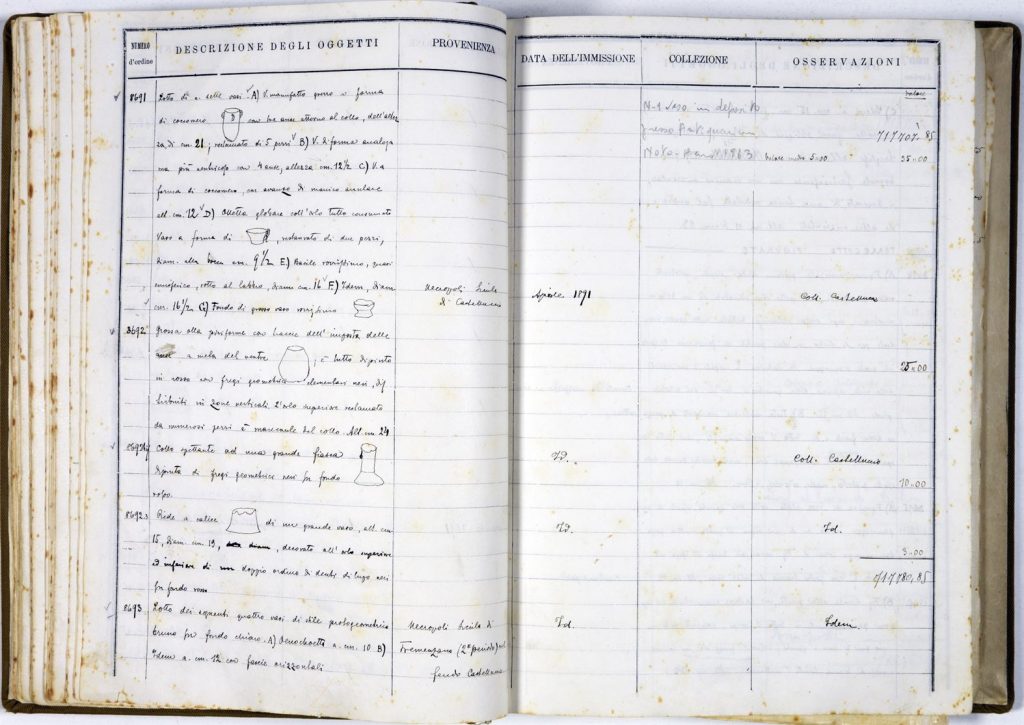 NUMERO d'ordine
DESCRIZIONE DEGLI OGGETTI
PROVENIENZA
DATA DELL'IMMISSIONE
COLLEZIONE
OSSERVAZIONI
8691
Lotto di n. sette vasi. A) V. manufatto grosso a forma
di cocomero con tre anse attorno al collo, dell'altez
za di cm. 21; restaurato di 5 pezzi B) V. di forma analoga
ma più ventricolo con 4 anse, altezza cm. 12 1/2 C) V. a
forma di cocomero, con avanzo di manico anulare
alt. cm. 12 D) Olletta globare coll'orlo tutto consumato
Vaso a forma di , restaurato di due pezzi,
diam. alla bocca cm. 9 1/2 E) Bacile rozzissimo, quasi
emisferico, rotto al labbro, diam. cm. 16 F) Idem, diam
cm. 16 1/2 G) Fondo di grosso vaso rozzissimo
Necropoli Sicula
di Castelluccio
Agosto 1891
Coll. Castelluccio
N. 1 vaso in deposito
presso Antiquarium
valore
717707,85
35.00
8692
Grossa olla piriforme con traccie dell'imposta delle
anse a metà del ventre ; è tutto dipinto
in rosso con fregi geometrici elementari neri, di
stribuiti in zone verticali. L'orlo superiore restaurato
da numerosi pezzi è mancante del collo. Alt. cm. 24
25.00
Collo spettante ad una grande fiasca
dipinta di fregi geometrici neri su fondo
rosso.
Id.
Coll. Castelluccio
10.00
8692.3
Piede a calice di un grande vaso, alt. cm.
15, diam. cm. 19, decorato all'orlo superiore
ed inferiore di un doppio ordine di denti di lupo neri
su fondo rosso
Id.
Id.
3.00
717780,85
8693
Lotto dei seguenti quattro vasi di stile protogeometrico
bruno su fondo chiaro. A) Oenochoetta a. cm. 10 B)
Idem a. cm. 12 con fascie orizzontali
Necropoli Sicula di
Tremenzano (2° periodo) nel
feudo Castelluccio
Id.
Idem